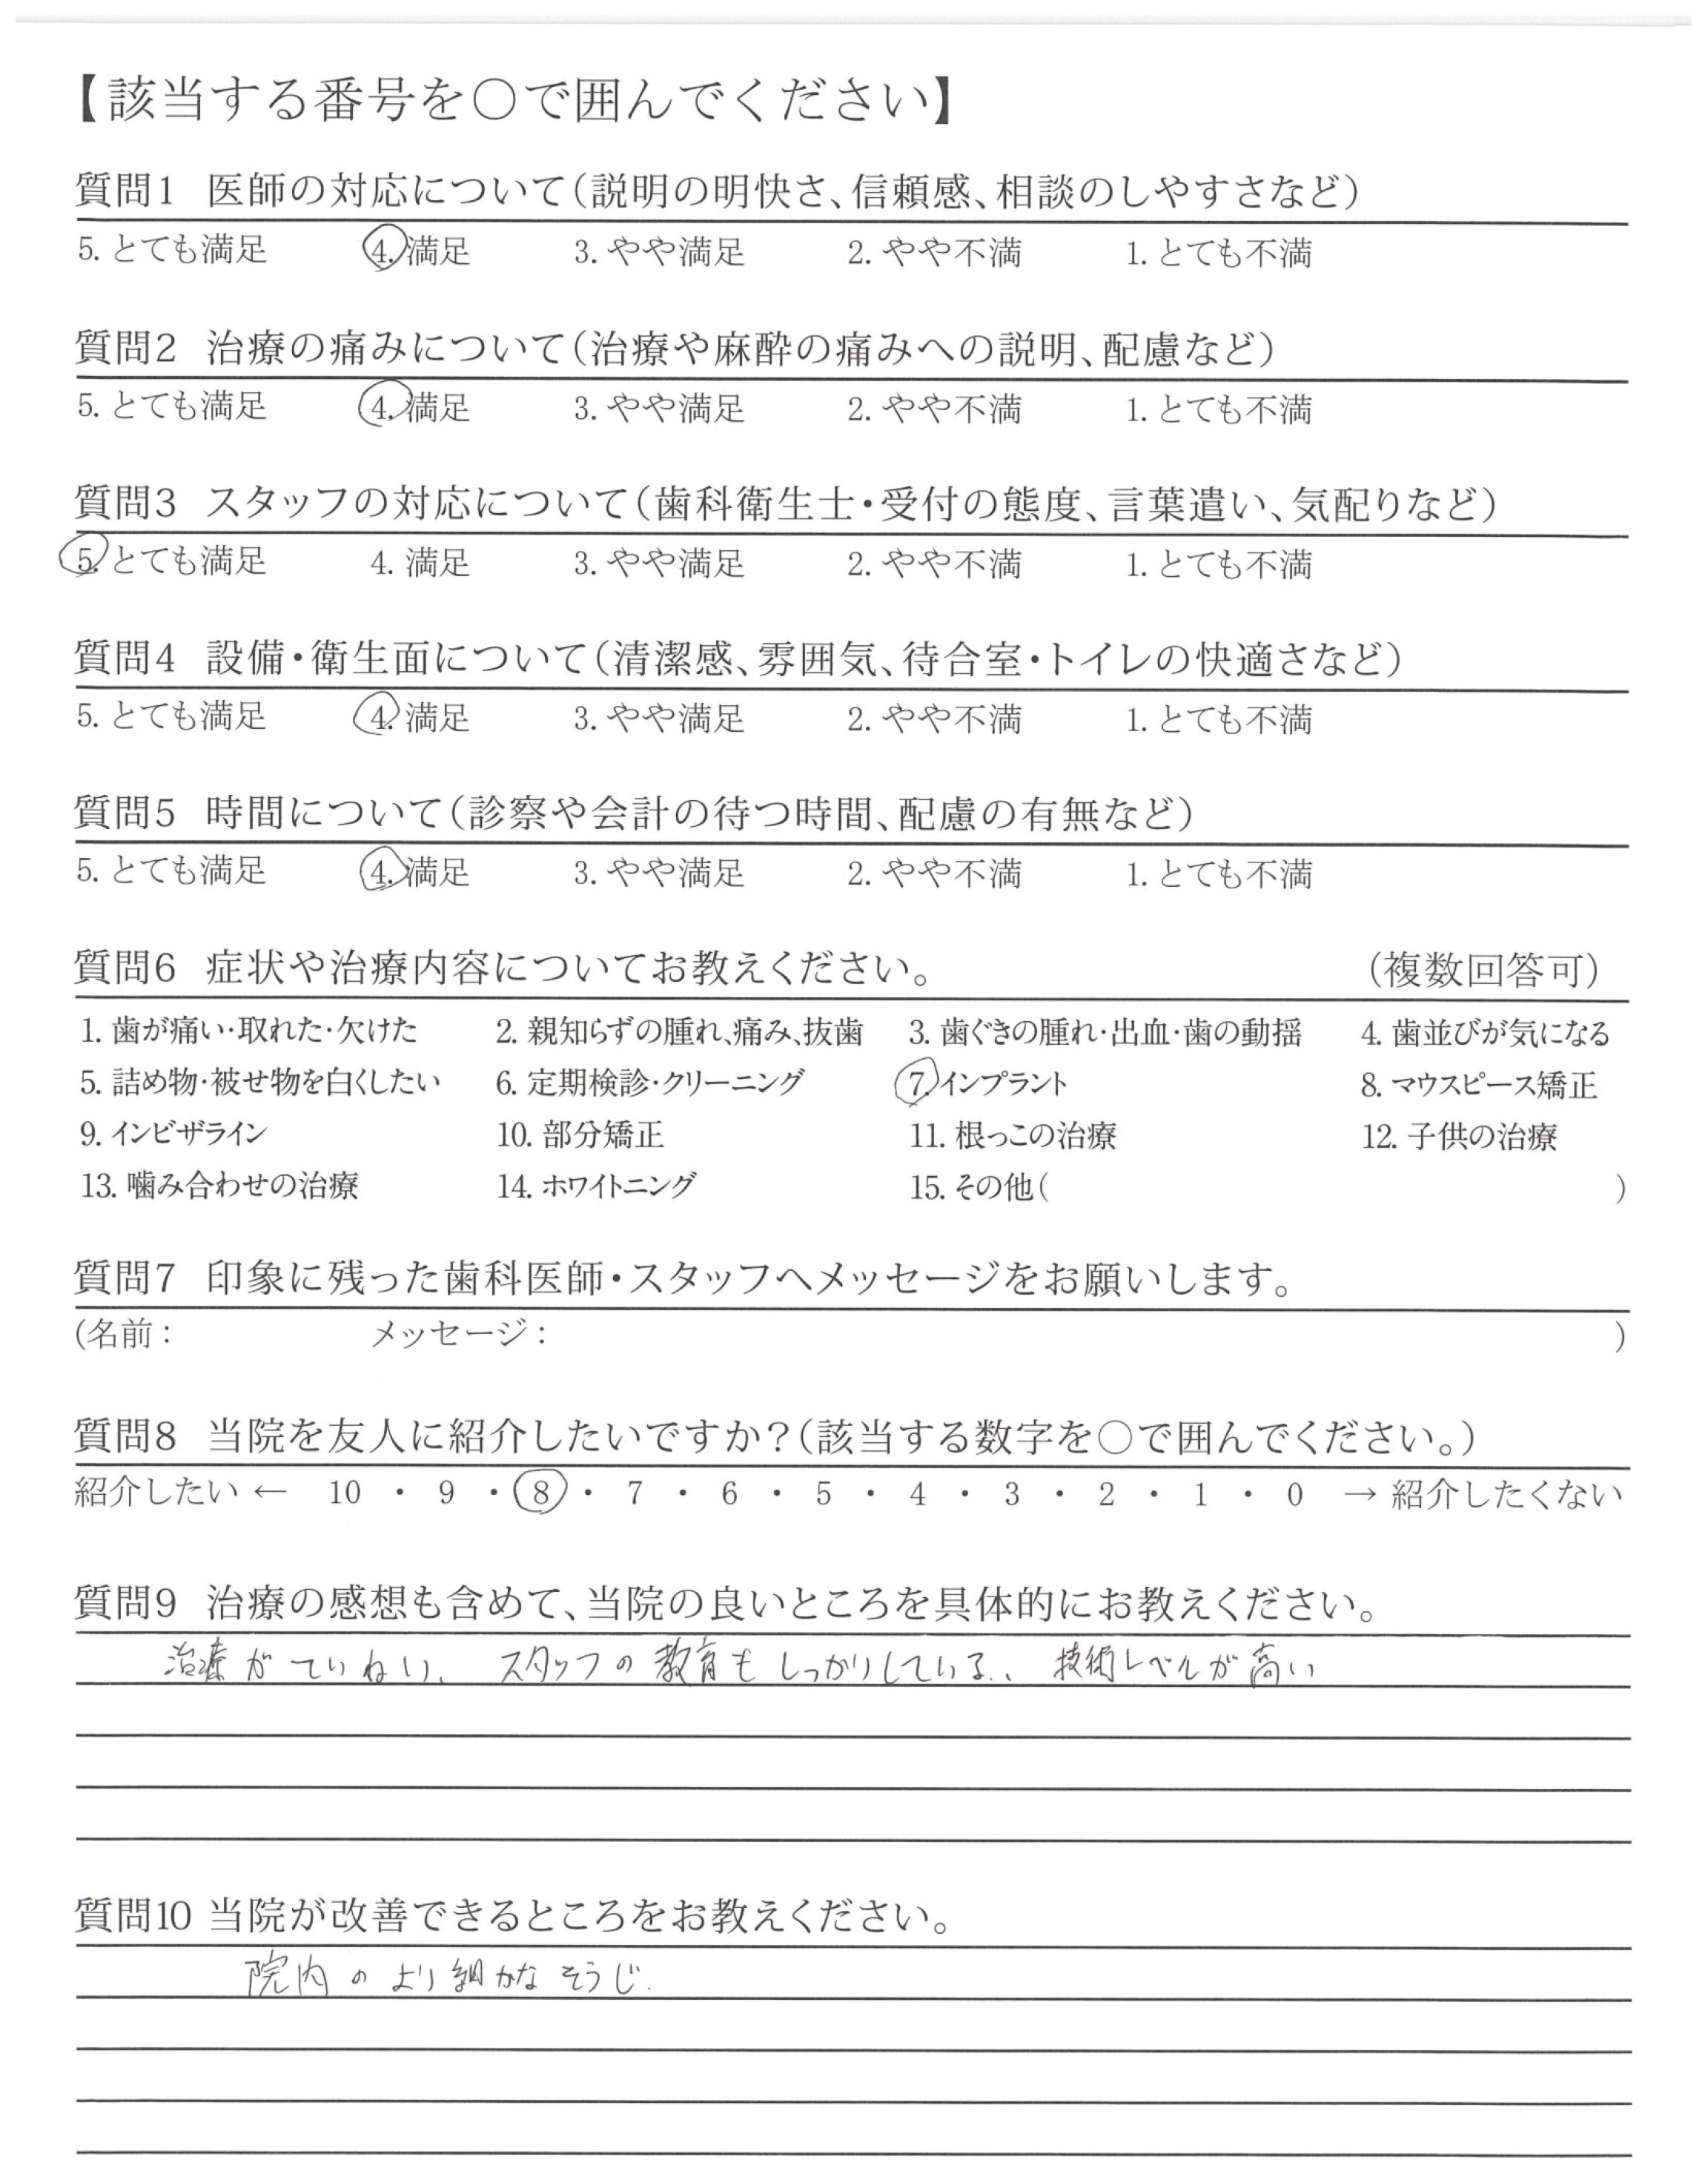 【該当する番号を〇で囲んでください】
質問1 医師の対応について(説明の明快さ、信頼感、相談のしやすさなど)
5. とても満足 4. 満足 3. やや満足 2. やや不満 1. とても不満
質問2 治療の痛みについて(治療や麻酔の痛みへの説明、配慮など)
5. とても満足 4. 満足 3. やや満足 2. やや不満 1. とても不満
質問3 スタッフの対応について(歯科衛生士・受付の態度、言葉遣い、気配りなど)
5. とても満足 4. 満足 3. やや満足 2. やや不満 1. とても不満
質問4 設備・衛生面について(清潔感、雰囲気、待合室・トイレの快適さなど)
5. とても満足 4. 満足 3. やや満足 2. やや不満 1. とても不満
質問5 時間について(診察や会計の待つ時間、配慮の有無など)
5. とても満足 4. 満足 3. やや満足 2. やや不満 1. とても不満
質問6 症状や治療内容についてお教えください。 (複数回答可)
1. 歯が痛い・取れた・欠けた 2. 親知らずの腫れ、痛み、抜歯 3. 歯ぐきの腫れ・出血・歯の動揺 4. 歯並びが気になる
5. 詰め物・被せ物を白くしたい 6. 定期検診・クリーニング 7. インプラント 8. マウスピース矯正
9. インビザライン 10. 部分矯正 11. 根っこの治療 12. 子供の治療
13. 噛み合わせの治療 14. ホワイトニング 15. その他( )
質問7 印象に残った歯科医師・スタッフへメッセージをお願いします。
(名前: メッセージ: )
質問8 当院を友人に紹介したいですか?(該当する数字を〇で囲んでください。)
紹介したい ← 10 ・ 9 ・ 8 ・ 7 ・ 6 ・ 5 ・ 4 ・ 3 ・ 2 ・ 1 ・ 0 → 紹介したくない
質問9 治療の感想も含めて、当院の良いところを具体的にお教えください。
治療がていねい、スタッフの教育もしっかりしている、技術レベルが高い
質問10 当院が改善できるところをお教えください。
院内のより細かなそうじ.